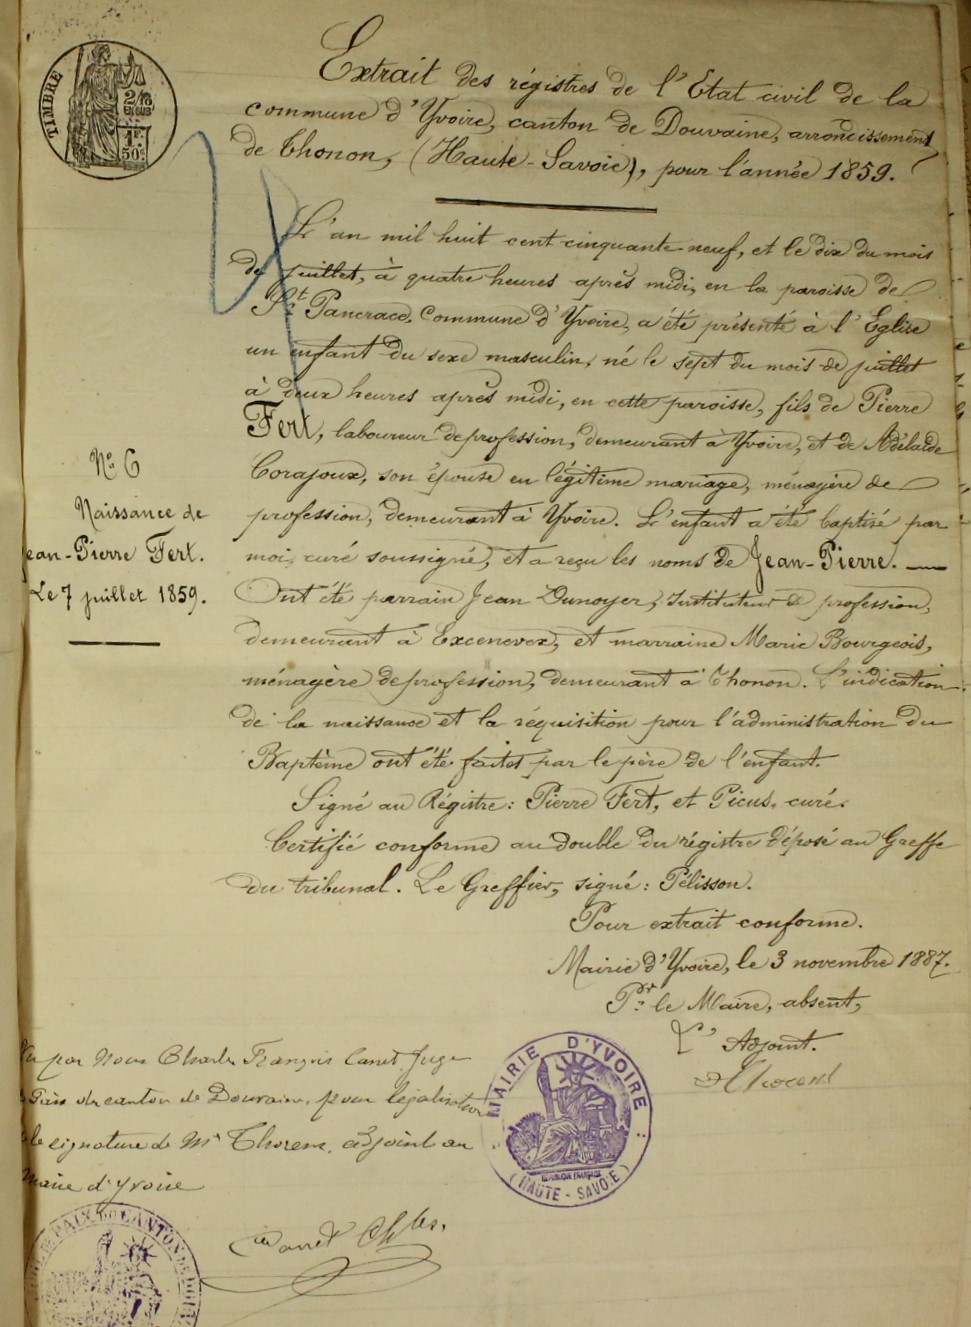 TIMBRE
2/10
EN SUS
1F.
50c.
Extrait des régistres de l'Etat civil de la
commune d'Yvoire, canton de Douvaine, arrondissement
de Thonon, (Haute-Savoie), pour l'année 1859.
L'an mil huit cent cinquante-neuf, et le dix du mois
de juillet, à quatre heures après midi, en la paroisse de
St. Pancrace, Commune d'Yvoire, a été présenté à l'Eglise
un enfant du sexe masculin, né le sept du mois de juillet
à deux heures après midi, en cette paroisse, fils de Pierre
Fert, laboureur de profession, demeurant à Yvoire, et de Adélaïde
Corajoux, son épouse en légitime mariage, ménagère de
profession, demeurant à Yvoire. L'enfant a été baptisé par
moi, curé soussigné, et a reçu les noms de Jean-Pierre.
Ont été parrain Jean Dunoyer, Instituteur de profession,
demeurant à Excenevex, et marraine Marie Bourgeois,
ménagère de profession, demeurant à Thonon. L'indication
de la naissance et la réquisition pour l'administration du
Baptème ont été faites par le père de l'enfant.
Signé au Régistre: Pierre Fert, et Picus, curé.
Certifié conforme au double du régistre déposé au Greffe
du tribunal. Le Greffier, signé: Pélisson.
Pour extrait conforme.
Mairie d'Yvoire, le 3 novembre 1887.
Pr. le Maire, absent,
L'Adjoint.
Thorens
No. 6
Naissance de
Jean-Pierre Fert.
Le 7 juillet 1859.
Vu par Nous Charles François Canet Juge
Paix du canton de Douvaine, pour légalisation
de signature de Mr Thorens, adjoint au
Maire d'Yvoire
Canet Chles.
MAIRIE D'YVOIRE
RÉPUBLIQUE FRANÇAISE
(HAUTE-SAVOIE)
DE PAIX DU CANTON DE DOU